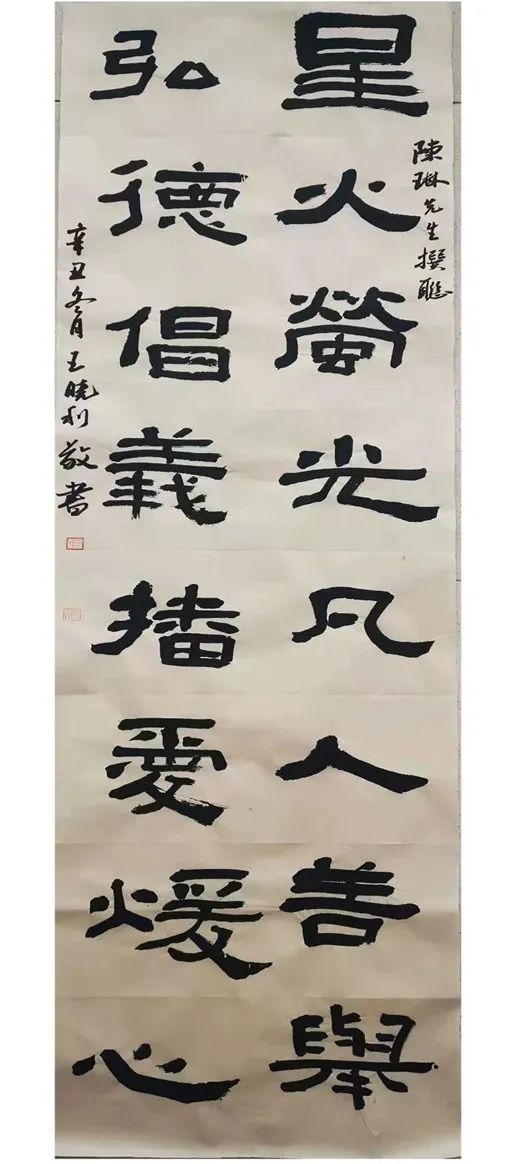 陳琳先生撰聯
星火螢光凡人善舉
弘德倡義播愛煖心
辛丑冬月王曉利敬書